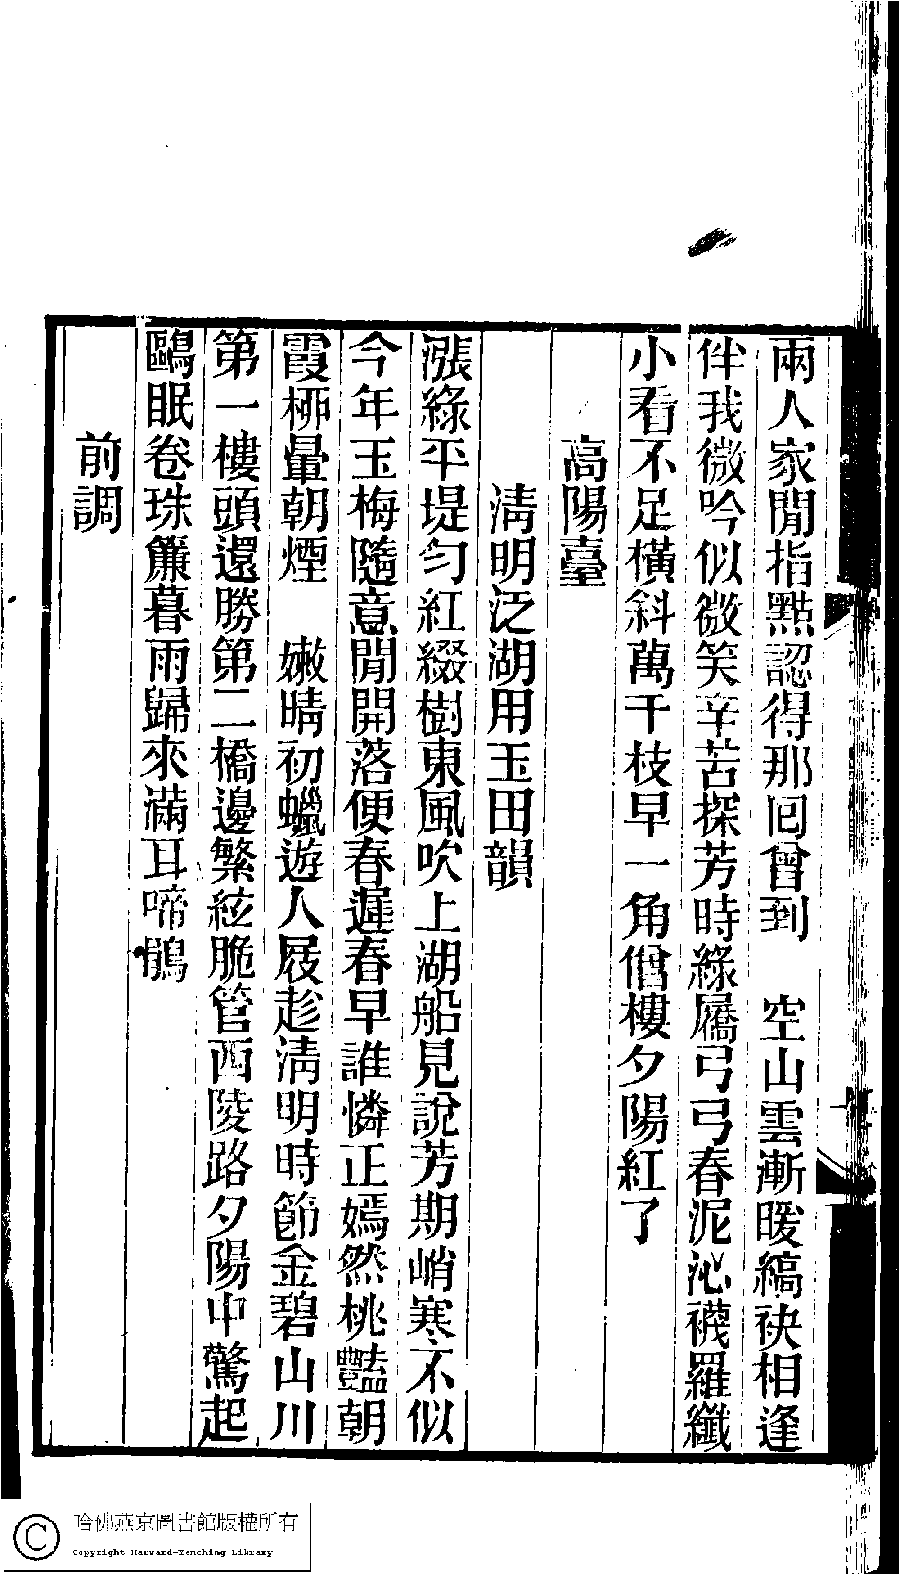 兩人家閒指點認得那囘曾到　空山雲漸暖縞袂相逢
伴我微吟似微笑辛苦探芳時綠屩弓弓春泥沁襪羅纖
小看不足橫斜萬千枝早一角僧樓夕陽紅了
高陽臺
清明泛湖用玉田韻
漲綠平堤勻紅綴樹東風吹上湖船見說芳期峭寒不似
今年玉梅隨意閒開落便春遲春早誰憐正嫣然桃豔朝
霞桺暈朝煙　嫩晴初蠟遊人屐趁清明時節金碧山川
第一樓頭還勝第二橋邊繁絃脆管西陵路夕陽中驚起
鷗眠卷珠簾暮雨歸來滿耳啼鵑
前調
哈佛燕京圖書館版權所有
Copyright Harvard-Yenching Library